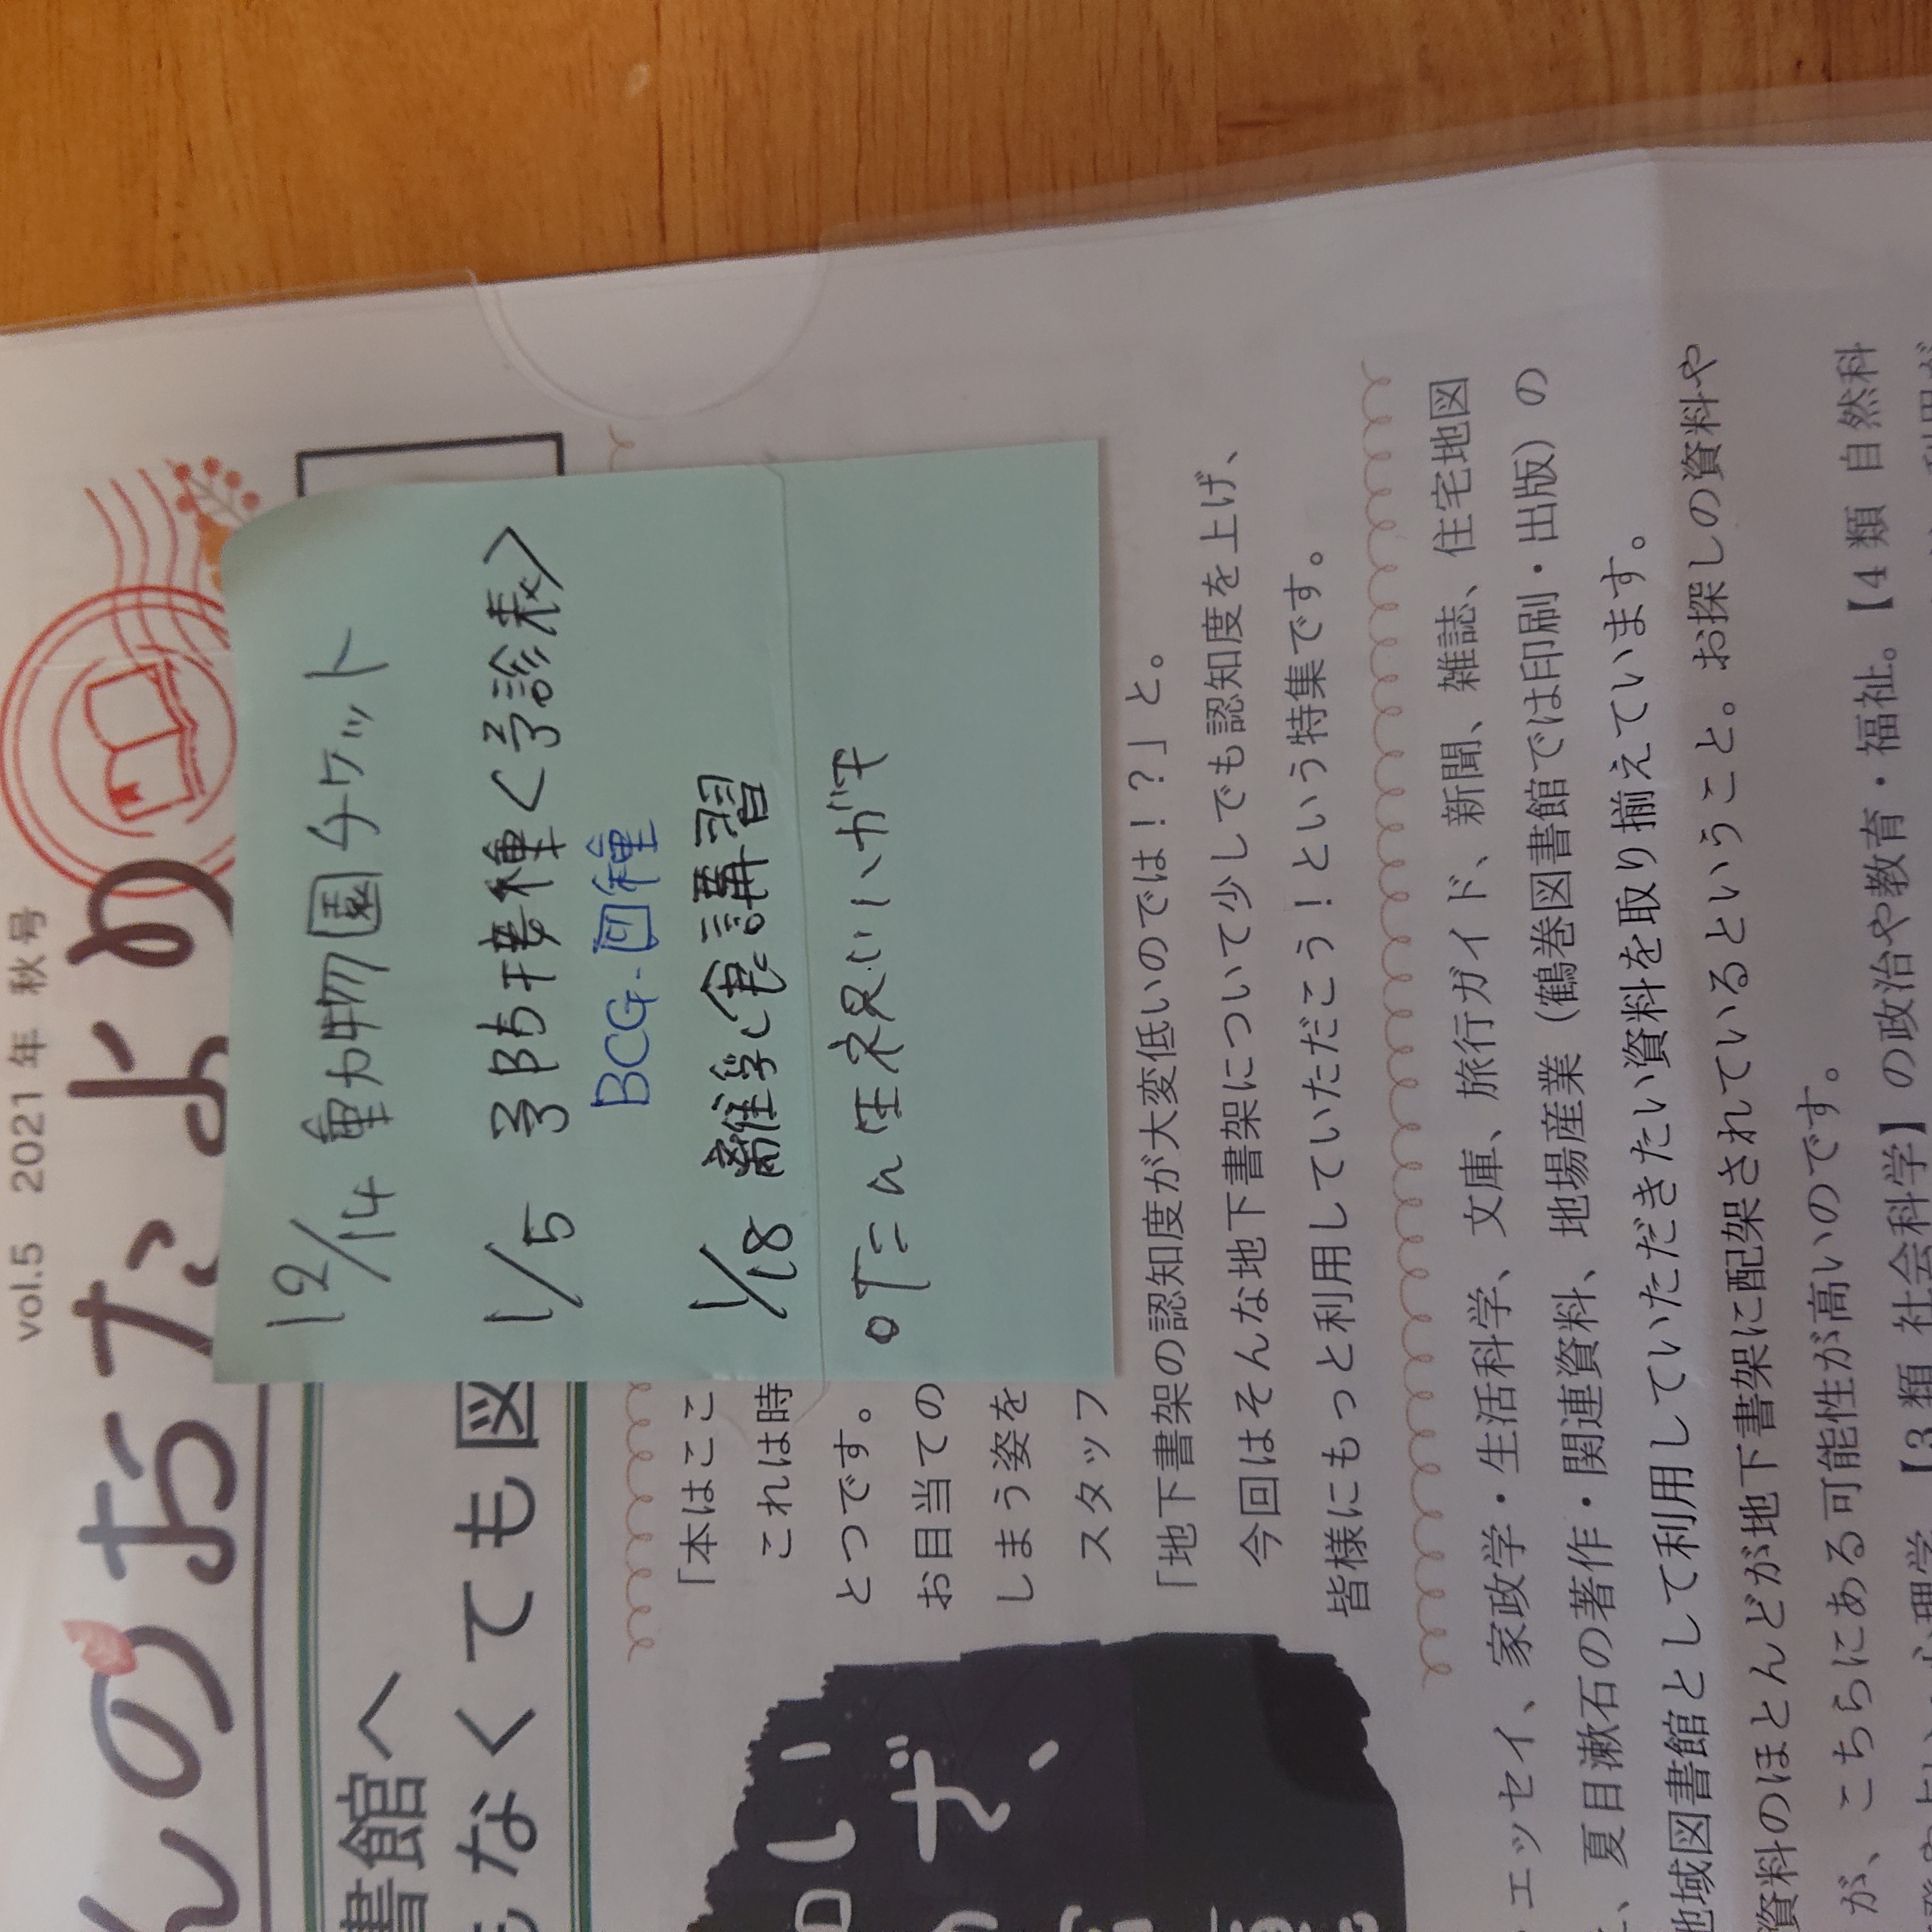 vol.5 2021年 秋号
んのおたより
書館へ
もなくても図
12/14 動物園チケット
1/5 予防接種<予診表>
BCG.四種
1/18 離乳食講習
「本はここ
これは時
とつです。
お目当ての
しまう姿を
スタッフ
「地下書架の認知度が大変低いのでは!?」と。
今回はそんな地下書架について少しでも認知度を上げ、
皆様にもっと利用していただこう!という特集です。
エッセイ、家政学・生活科学、文庫、旅行ガイド、新聞、雑誌、住宅地図
、夏目漱石の著作・関連資料、地場産業(鶴巻図書館では印刷・出版)の
地域図書館として利用していただきたい資料を取り揃えています。
資料のほとんどが地下書架に配架されているということ。お探しの資料や
が、こちらにある可能性が高いのです。
【3類 社会科学】の政治や教育・福祉。【4類 自然科